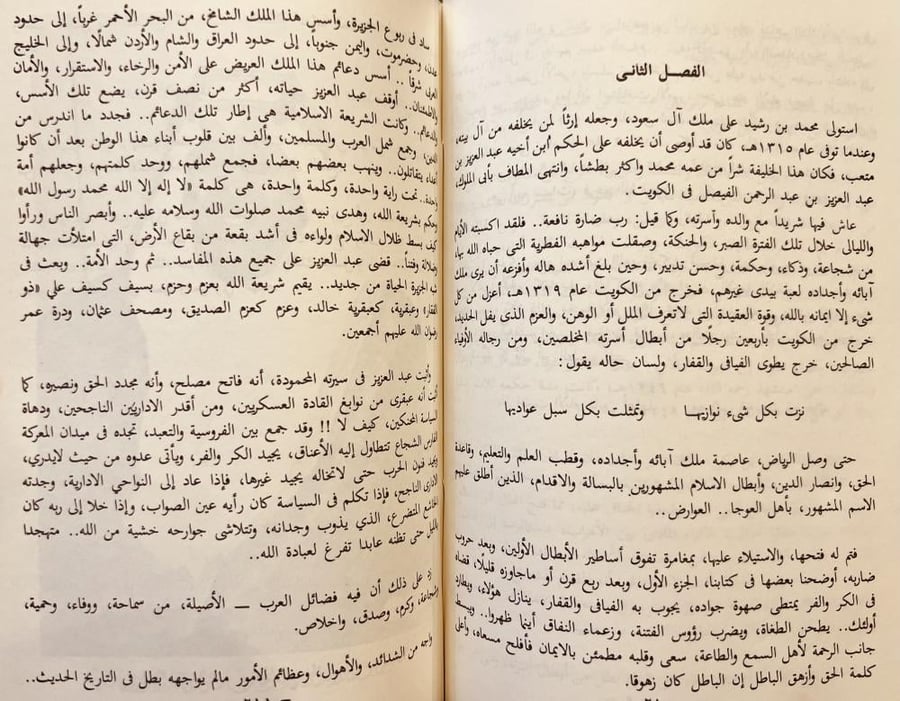 الفصل الثانى
استولى محمد بن رشيد على ملك آل سعود، وجعله إرثاً لمن يخلفه من آل بيته،
وعندما توفى عام ١٣١٥هـ، كان قد أوصى أن يخلفه على الحكم ابن أخيه عبد العزيز بن
متعب، فكان هذا الخليفة شراً من عمه محمد واكثر بطشاً، وانتهى المطاف بأبى الملوك،
عبد العزيز بن عبد الرحمن الفيصل فى الكويت..
عاش فيها شريداً مع والده وأسرته، وكما قيل: رب ضارة نافعة.. فلقد اكسبته الأيام
والليالى خلال تلك الفترة الصبر، والحنكة، وصقلت مواهبه الفطرية التى حباه الله بها،
من شجاعة، وذكاء، وحكمة، وحسن تدبير، وحين بلغ أشده هاله وأفزعه أن يرى ملك
آبائه وأجداده لعبة بيدى غيرهم، فخرج من الكويت عام ١٣١٩هـ، أعزل من كل
شىء إلا ايمانه بالله، وقوة العقيدة التى لاتعرف الملل أو الوهن، والعزم الذى يفل الحديد،
خرج من الكويت بأربعين رجلًا من أبطال أسرته المخلصين، ومن رجاله الأوفياء
الصالحين، خرج يطوى الفيافى والقفار، ولسان حاله يقول:
نزت بكل شىء نوازيها وتمثلت بكل سبل عواديها
حتى وصل الرياض، عاصمة ملك آبائه وأجداده، وقطب العلم والتعليم، وقاعدة
الحق، وانصار الدين، وأبطال الاسلام المشهورين بالبسالة والاقدام، الذين أطلق عليهم
الاسم المشهور، بأهل العوجا.. العوارض..
فتم له فتحها، والاستيلاء عليها، بمغامرة تفوق أساطير الأبطال الأولين، وبعد حروب
ضاربه، أوضحنا بعضها فى كتابنا، الجزء الأول، وبعد ربع قرن أو ماجاوزه قليلًا، قضاه
فى الكر والفر يمتطى صهوة جواده، يجوب به الفيافى والقفار، ينازل هؤلاء، ويطارد
أولئك.. يطحن الطغاة، ويضرب رؤوس الفتنة، وزعماء النفاق أينما ظهروا.. ويبسط
جانب الرحمة لأهل السمع والطاعة، سعى وقلبه مطمئن بالايمان فأفلح مسعاه، وأعلى
كلمة الحق وأزهق الباطل إن الباطل كان زهوقا.
ساد فى ربوع الجزيرة، وأسس هذا الملك الشامخ، من البحر الأحمر غرباً، إلى حدود
عدن، وحضرموت، واليمن جنوباً، إلى حدود العراق والشام والأردن شمالًا، وإلى الخليج
العربى شرقاً.. أسس دعائم هذا الملك العريض على الأمن والرخاء، والاستقرار، والأمان
والاطمئنان.. أوقف عبد العزيز حياته، أكثر من نصف قرن، يضع تلك الأسس،
والدعائم.. وكانت الشريعة الاسلامية هى إطار تلك الدعائم.. فجدد ما اندرس من
الدين، وجمع شمل العرب والمسلمين، وألف بين قلوب أبناء هذا الوطن بعد أن كانوا
أعداء يتقاتلون.. وينهب بعضهم بعضا، فجمع شملهم، ووحد كلمتهم، وجعلهم أمة
واحدة.. تحت راية واحدة، وكلمة واحدة، هى كلمة «لا إله إلا الله محمد رسول الله»
وحكم بشريعة الله، وهدى نبيه محمد صلوات الله وسلامه عليه.. وأبصر الناس ورأوا
كيف بسط ظلال الاسلام ولواءه فى أشد بقعة من بقاع الأرض، التى امتلأت جهالة
وضلالة وفتناً.. قضى عبد العزيز على جميع هذه المفاسد.. ثم وحد الأمة.. وبعث فى
الجزيرة الحياة من جديد.. يقيم شريعة الله بعزم وحزم، بسيف كسيف علي «ذو
الفقار» وعبقرية، كعبقرية خالد، وعزم كعزم الصديق، ومصحف عثمان، ودرة عمر
رضوان الله عليهم أجمعين.
وأثبت عبد العزيز فى سيرته المحمودة، أنه فاتح مصلح، وأنه مجدد الحق ونصيره، كما
أثبت أنه عبقرى من نوابغ القادة العسكريين، ومن أقدر الاداريين الناجحين، ودهاة
السياسة المحنكين، كيف لا !! وقد جمع بين الفروسية والتعبد، تجده فى ميدان المعركة
الفارس الشجاع تتطاول إليه الأعناق، يجيد الكر والفر، ويأتى عدوه من حيث لايدرى،
ويجيد فنون الحرب حتى لاتخاله يجيد غيرها، فإذا عاد إلى النواحي الادارية، وجدته
الادارى الناجح، فإذا تكلم فى السياسة كان رأيه عين الصواب، وإذا خلا إلى ربه كان
الخاشع المتضرع، الذي يذوب وجدانه، وتتلاشى جوارحه خشية من الله.. متهجدا
بالليل حتى تظنه عابدا تفرغ لعبادة الله..
زد على ذلك أن فيه فضائل العرب — الأصيلة، من سماحة، ووفاء، وحمية،
وشجاعة، وكرم، وصدق، واخلاص.
واجه من الشدائد، والأهوال، وعظائم الأمور مالم يواجهه بطل فى التاريخ الحديث..